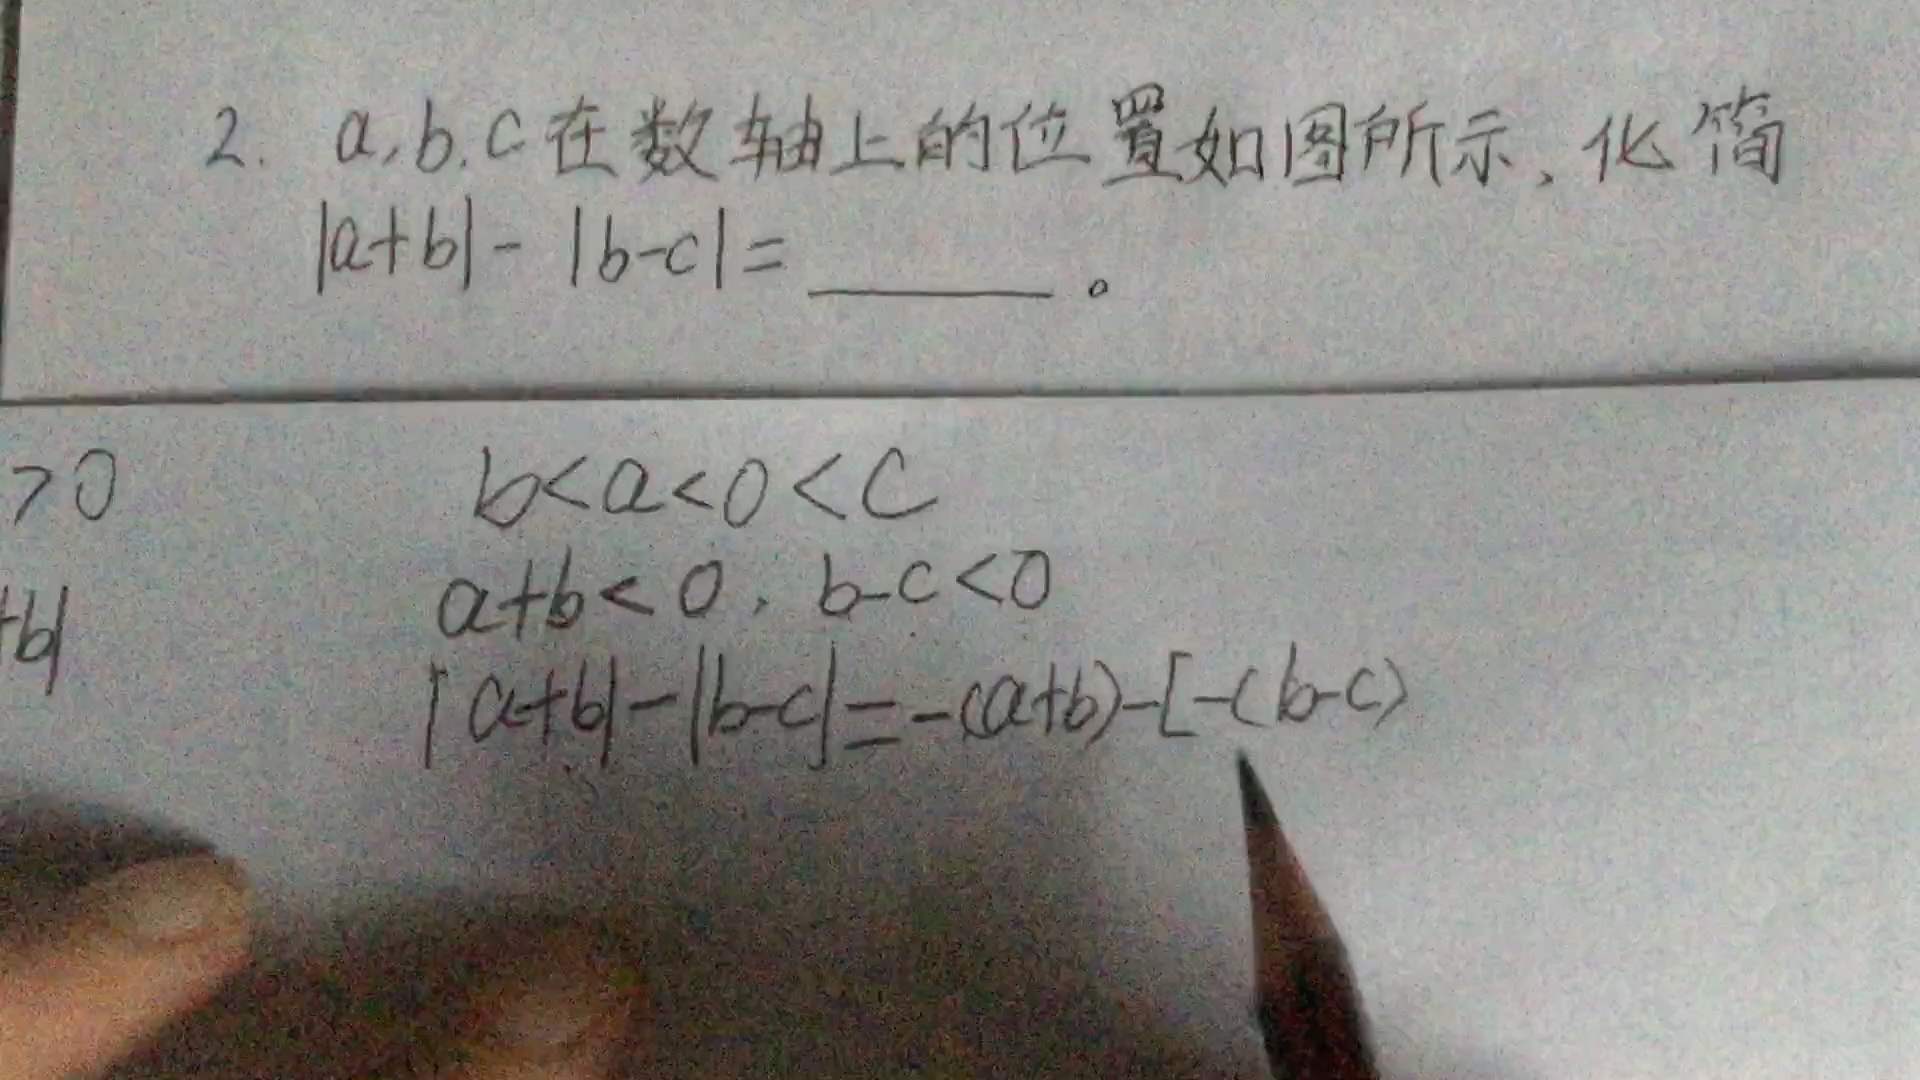 2. a,b,c在数轴上的位置如图所示、化简
|a+b|-|b-c|=______。
>0
b<a<0<c
a+b<0, b-c<0
+b|
|a+b|-|b-c|=-(a+b)-[-(b-c)